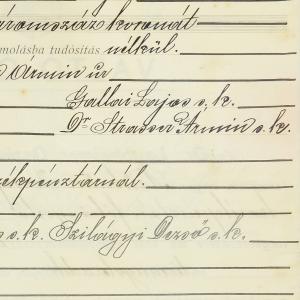 háromszáz koronát
molásba tudósítás nélkül.
Ármin úr
Gallai Lajos s. k.
Dr Strasser Ármin s. k.
zékpénztárnál.
s. k. Szilágyi Dezső s. k.